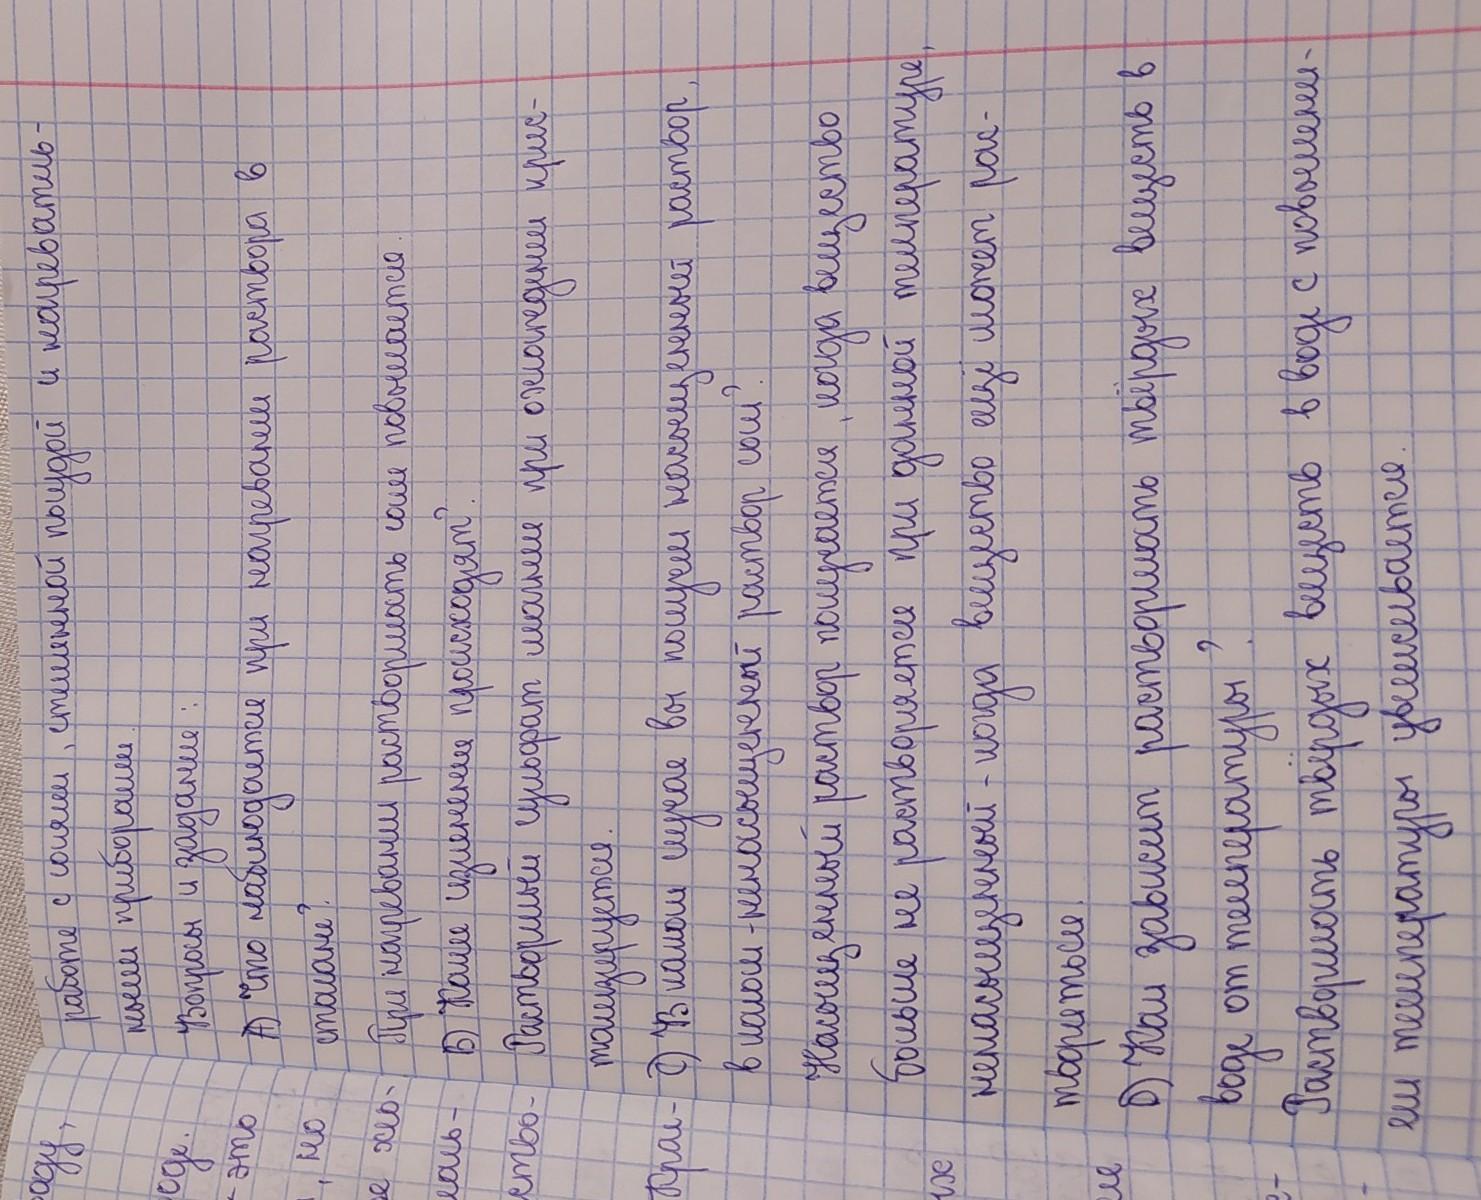 работе с солями, стеклянной посудой и нагреватель-
ными приборами.
Вопросы и задания:
А) Что наблюдается при нагревании раствора в
стакане?
При нагревании растворимость соли повышается.
Б) Какие изменения происходят?
Растворимый сульфат калия при охлаждении крис-
таллизируется.
С) В каком случае вы получили насыщенный раствор,
в каком - ненасыщенный раствор соли?
Насыщенный раствор получается, когда вещество
больше не растворяется при данной температуре,
ненасыщенный - когда вещество ещё может рас-
твориться.
D) Как зависит растворимость твёрдых веществ в
воде от температуры?
Растворимость твёрдых веществ в воде с повышени-
ем температуры увеличивается.
оду,
оде.
это
, но
ство-
Кри-
их